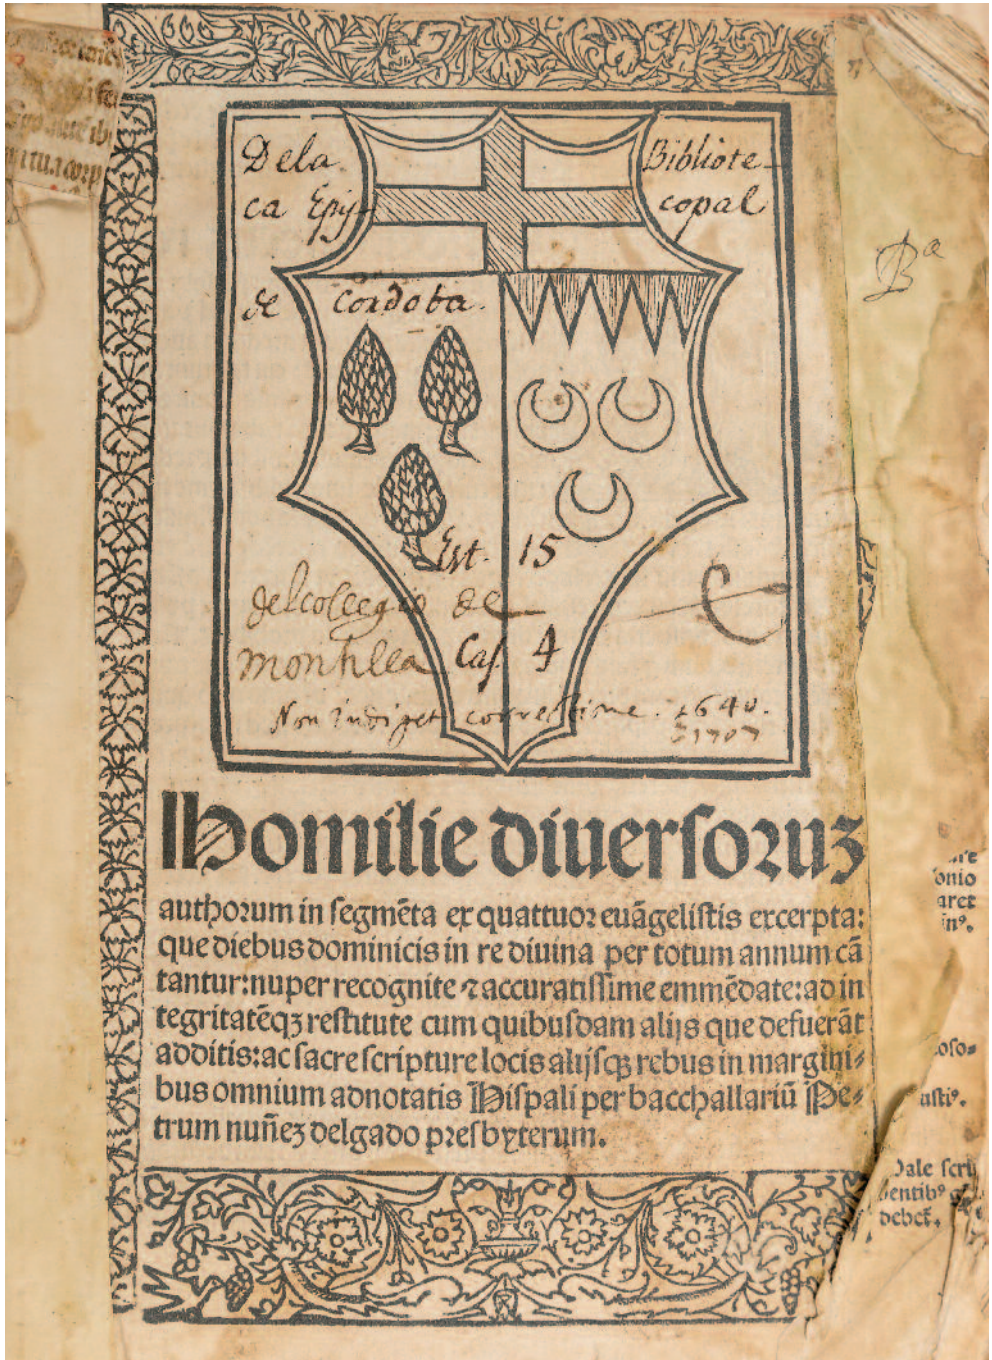 Dela Bibliote-
ca Epis- copal
de Cordoba.
Est. 15
del collegio de
montilla Cas. 4
Non indiget correctione. 1640.
1707
Bᵃ
Homilie diuersoruꝫ
authorum in segmẽta ex quattuor euãgelistis excerpta:
que diebus dominicis in re diuina per totum annum cã
tantur: nuper recognite ⁊ accuratissime emmẽdate: ad in
tegritatẽqꝫ restitute cum quibusdam alijs que defuerãt
additis: ac sacre scripture locis alijsqꝫ rebus in margini⸗
bus omnium adnotatis Hispali per bacchallariũ Pe⸗
trum nuñez delgado presbyterum.
onio
aret
inꝰ.
ustiꝰ.
debet.